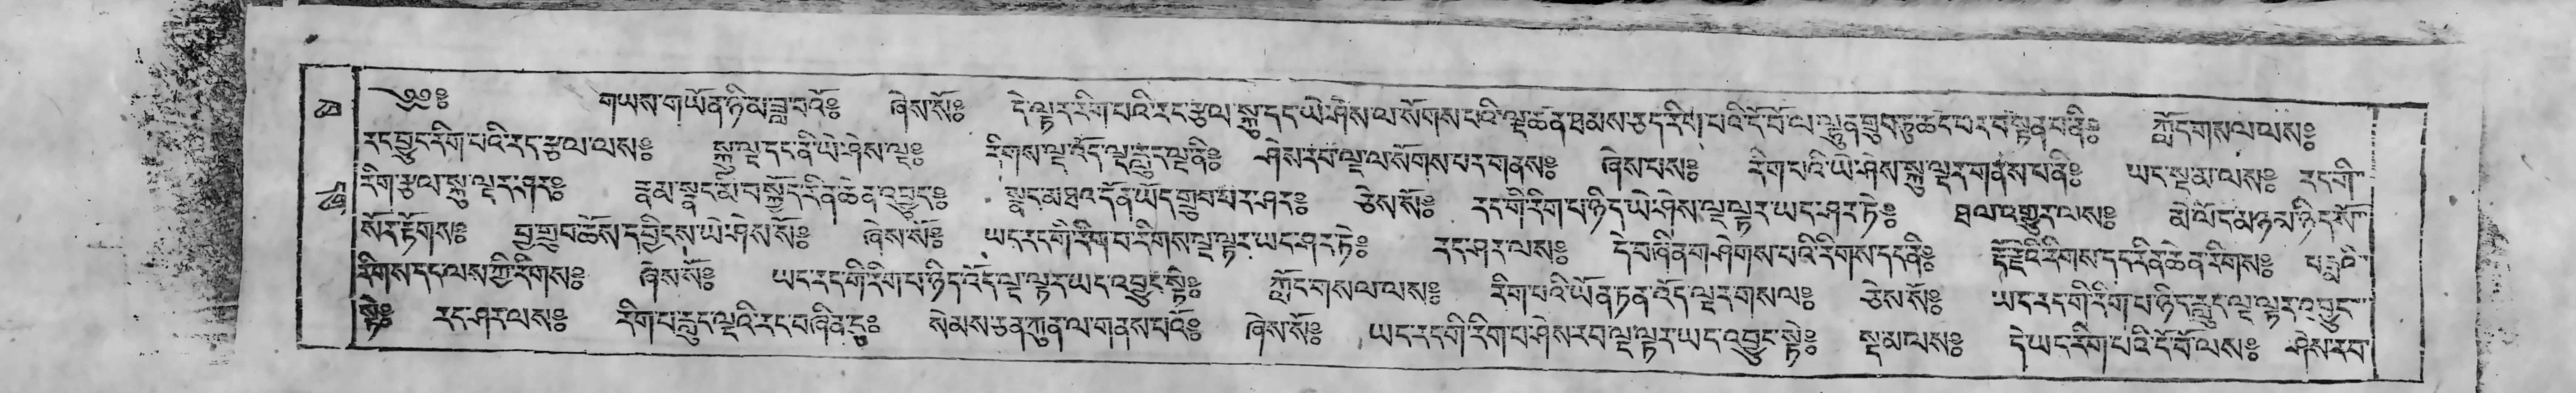 ༄༅༔ གཡས་གཡོན་ཉི་མ་ཟླ་བའོ༔ ཞེས་སོ༔ དེ་ལྟར་རིག་པའི་རང་རྩལ་སྐུ་དང་ཡེ་ཤེས་ལ་སོགས་པའི་ལྔ་ཚན་ཐམས་ཅད་རིག་པའི་ངོ་བོ་ལ་ལྷུན་གྲུབ་ཏུ་ཚང་བར་བསྟན་པ་ནི༔ ཀློང་གསལ་ལས༔
རང་བྱུང་རིག་པའི་རང་རྩལ་ལས༔ སྐུ་ལྔ་དང་ནི་ཡེ་ཤེས་ལྔ༔ རིགས་ལྔ་འོད་ལྔ་རླུང་ལྔ་ནི༔ ཤེས་རབ་ལྔ་ལ་སོགས་པར་གནས༔ ཞེས་པས༔ རིག་པའི་ཡེ་ཤེས་སྐུ་ལྔར་གནས་པ་ནི༔ ཡང་སྔ་མ་ལས༔ རང་གི་
རིག་རྩལ་སྐུ་ལྔར་ཤར༔ རྣམ་སྣང་མི་བསྐྱོད་རིན་ཆེན་འབྱུང༔ སྣང་མཐའ་དོན་ཡོད་གྲུབ་པར་ཤར༔ ཅེས་སོ༔ རང་གི་རིག་པ་ཉིད་ཡེ་ཤེས་ལྔ་ལྟར་ཡང་ཤར་ཏེ༔ ཐལ་འགྱུར་ལས༔ མེ་ལོང་མཉམ་ཉིད་སོ་
སོར་རྟོགས༔ བྱ་གྲུབ་ཆོས་དབྱིངས་ཡེ་ཤེས་སོ༔ ཞེས་སོ༔ ཡང་རང་གི་རིག་པ་རིགས་ལྔ་ལྟར་ཡང་ཤར་ཏེ༔ རང་ཤར་ལས༔ དེ་བཞིན་གཤེགས་པའི་རིགས་དང་ནི༔ རྡོ་རྗེའི་རིགས་དང་རིན་ཆེན་རིགས༔ པདྨའི་
རིགས་དང་ལས་ཀྱི་རིགས༔ ཞེས་སོ༔ ཡང་རང་གི་རིག་པ་ཉིད་འོད་ལྔ་ལྟར་ཡང་འབྱུང་སྟེ༔ ཀློང་གསལ་ལས༔ རིག་པའི་ཡོན་ཏན་འོད་ལྔར་གསལ༔ ཅེས་སོ༔ ཡང་རང་གི་རིག་པ་ཉིད་རླུང་ལྔ་ལྟར་འབྱུང་
སྟེ༔ རང་ཤར་ལས༔ རིག་པ་རླུང་ལྔའི་རང་བཞིན་དུ༔ སེམས་ཅན་ཀུན་ལ་གནས་པའོ༔ ཞེས་སོ༔ ཡང་རང་གི་རིག་པ་ཤེས་རབ་ལྔ་ལྟར་ཡང་འབྱུང་སྟེ༔ སྔ་མ་ལས༔ དེ་ཡང་རིག་པའི་ངོ་བོ་ལས༔ ཤེས་རབ་